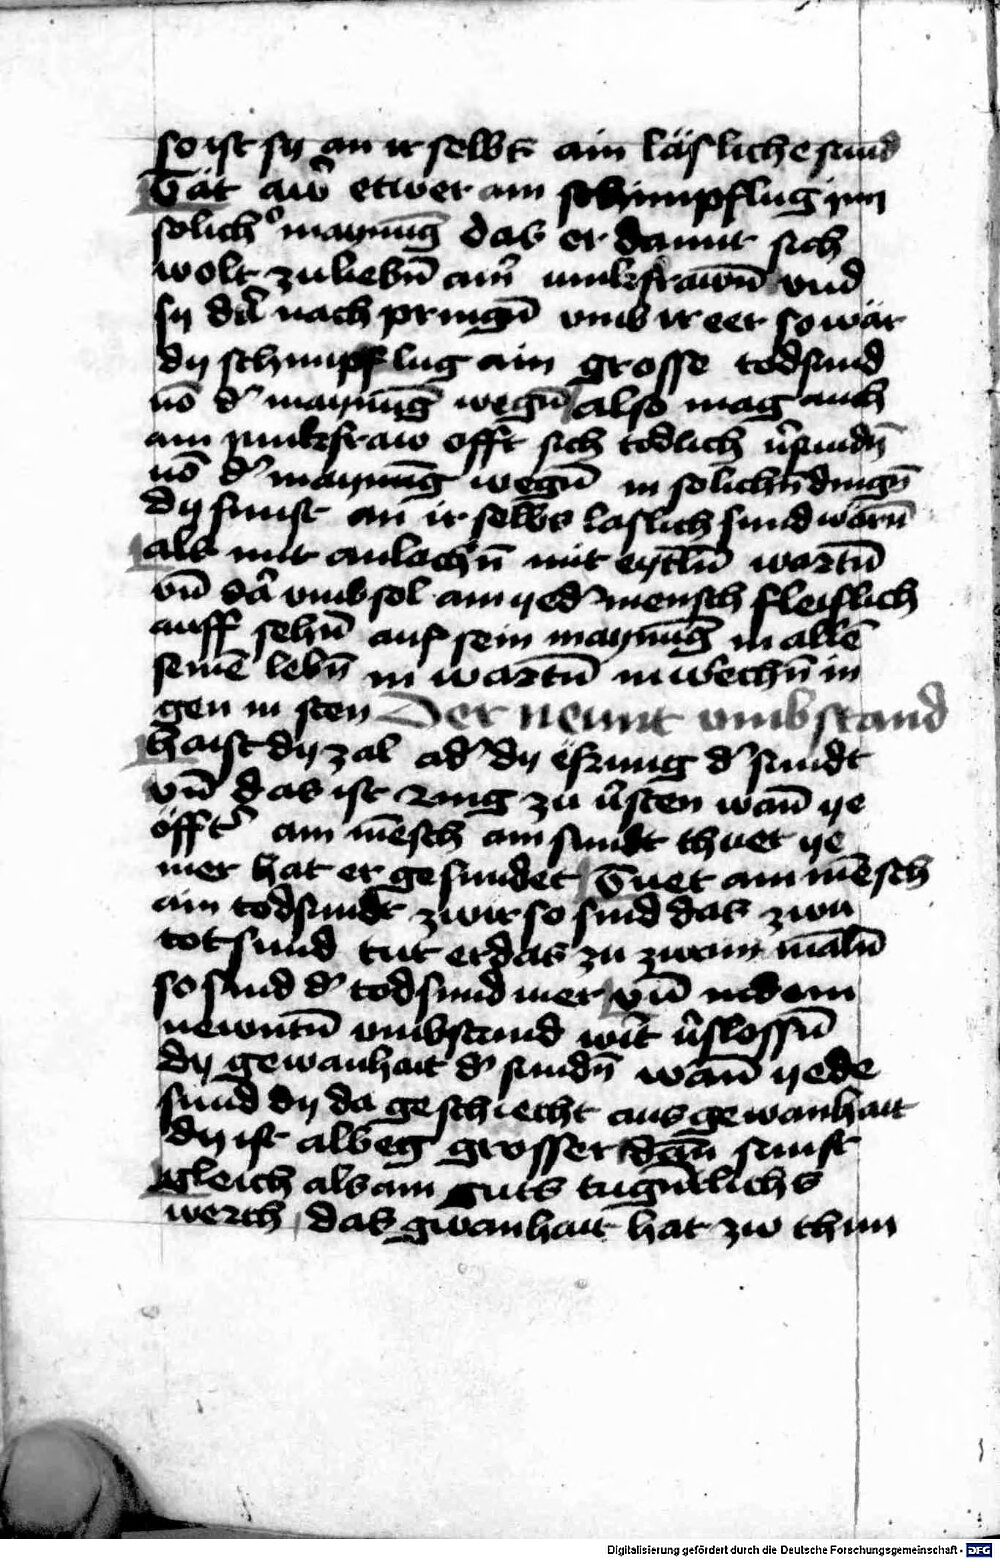 so ist sy an ir selbs ain läsliche sund
Tät aw̄ etwer ain schimpflug inn
solich̾ maynūg das er damit sich
wolt zuliebn̄ ain̾ iunkfrawn̄ vnd
sy dar̾ nach pringn̄ vmb ir eer so wär
dy schimpflug ain grosse todsund
vō d̾ maynūg wegn̄ also mag auch
ain iunkfraw offt sich todlich v̾sundn̄
vō d̾ maynūg wegn̄ in solichn̄ dingn̄
dy sunst an ir selbs laslich sund warn̄
als mit anlachn̄ mit eytln̄ wartn̄
vn̄ dar̾ vmb sol ain yed̾ mensch fleislich
auff sehn̄ auf sein maynūg in allē
seinē lebn̄ in wartn̄ in wechn̄ in
gen in sten Der neunt vmbstand
haist dy zal ad̾ dy efrung d̾ sundt
vn̄ das ist ring zu v̾sten wan̄ ye
öfft̾ ain mēsch ain sundt thuet ye
mer hat er gesundet Tuet ain mēsch
ain todsundt zwir so sind das zwu
totsund tut er das zu zwain maln̄
so sind d̾ todsund mer vn̄ in dem
newntn̄ vmbstand wirt v̾slossn̄
dy gewanhait d̾ sundn̄ wan̄ yede
sund dy da geschiecht aus gewanhait
dy ist albeg grosser dan̄ sunst
gleich als ain guts tugn̄tlichs
werch das gwanhait hat zw thun
Digitalisierung gefördert durch die Deutsche Forschungsgemeinschaft - DFG